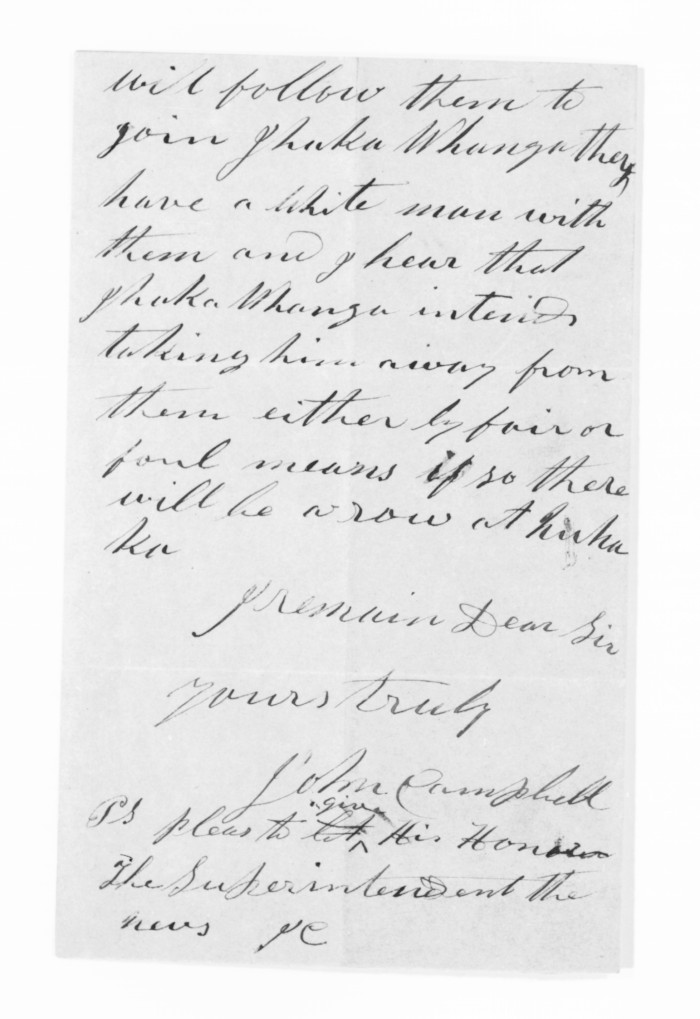 will follow them to
join Ihaka Whanga they
have a white man with
them and I hear that
Ihaka Whanga intends
taking him away from
them either by fair or
foul means if so there
will be a row at huha
ka
I remain Dear Sir
yours truly
John Campbell
PS pleas to let give His Honour
The Superintendent the
news JC